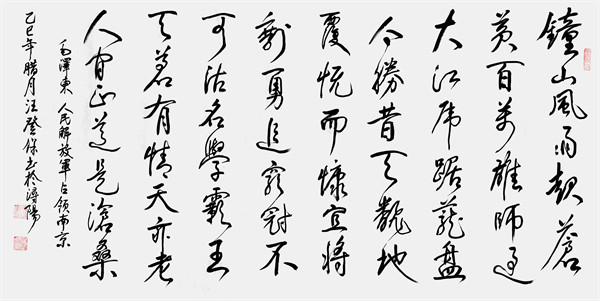 鐘山風雨起蒼
黄百萬雄師過
大江虎踞龍盤
今勝昔天翻地
覆慨而慷宜將
剩勇追窮寇不
可沽名學霸王
天若有情天亦老
人间正道是滄桑
毛澤東 人民解放軍占領南京
乙巳年腊月汪登保书於潯陽